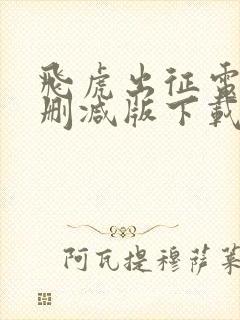 飛虎出征電
刪減版下載
阿瓦提穆薩萊